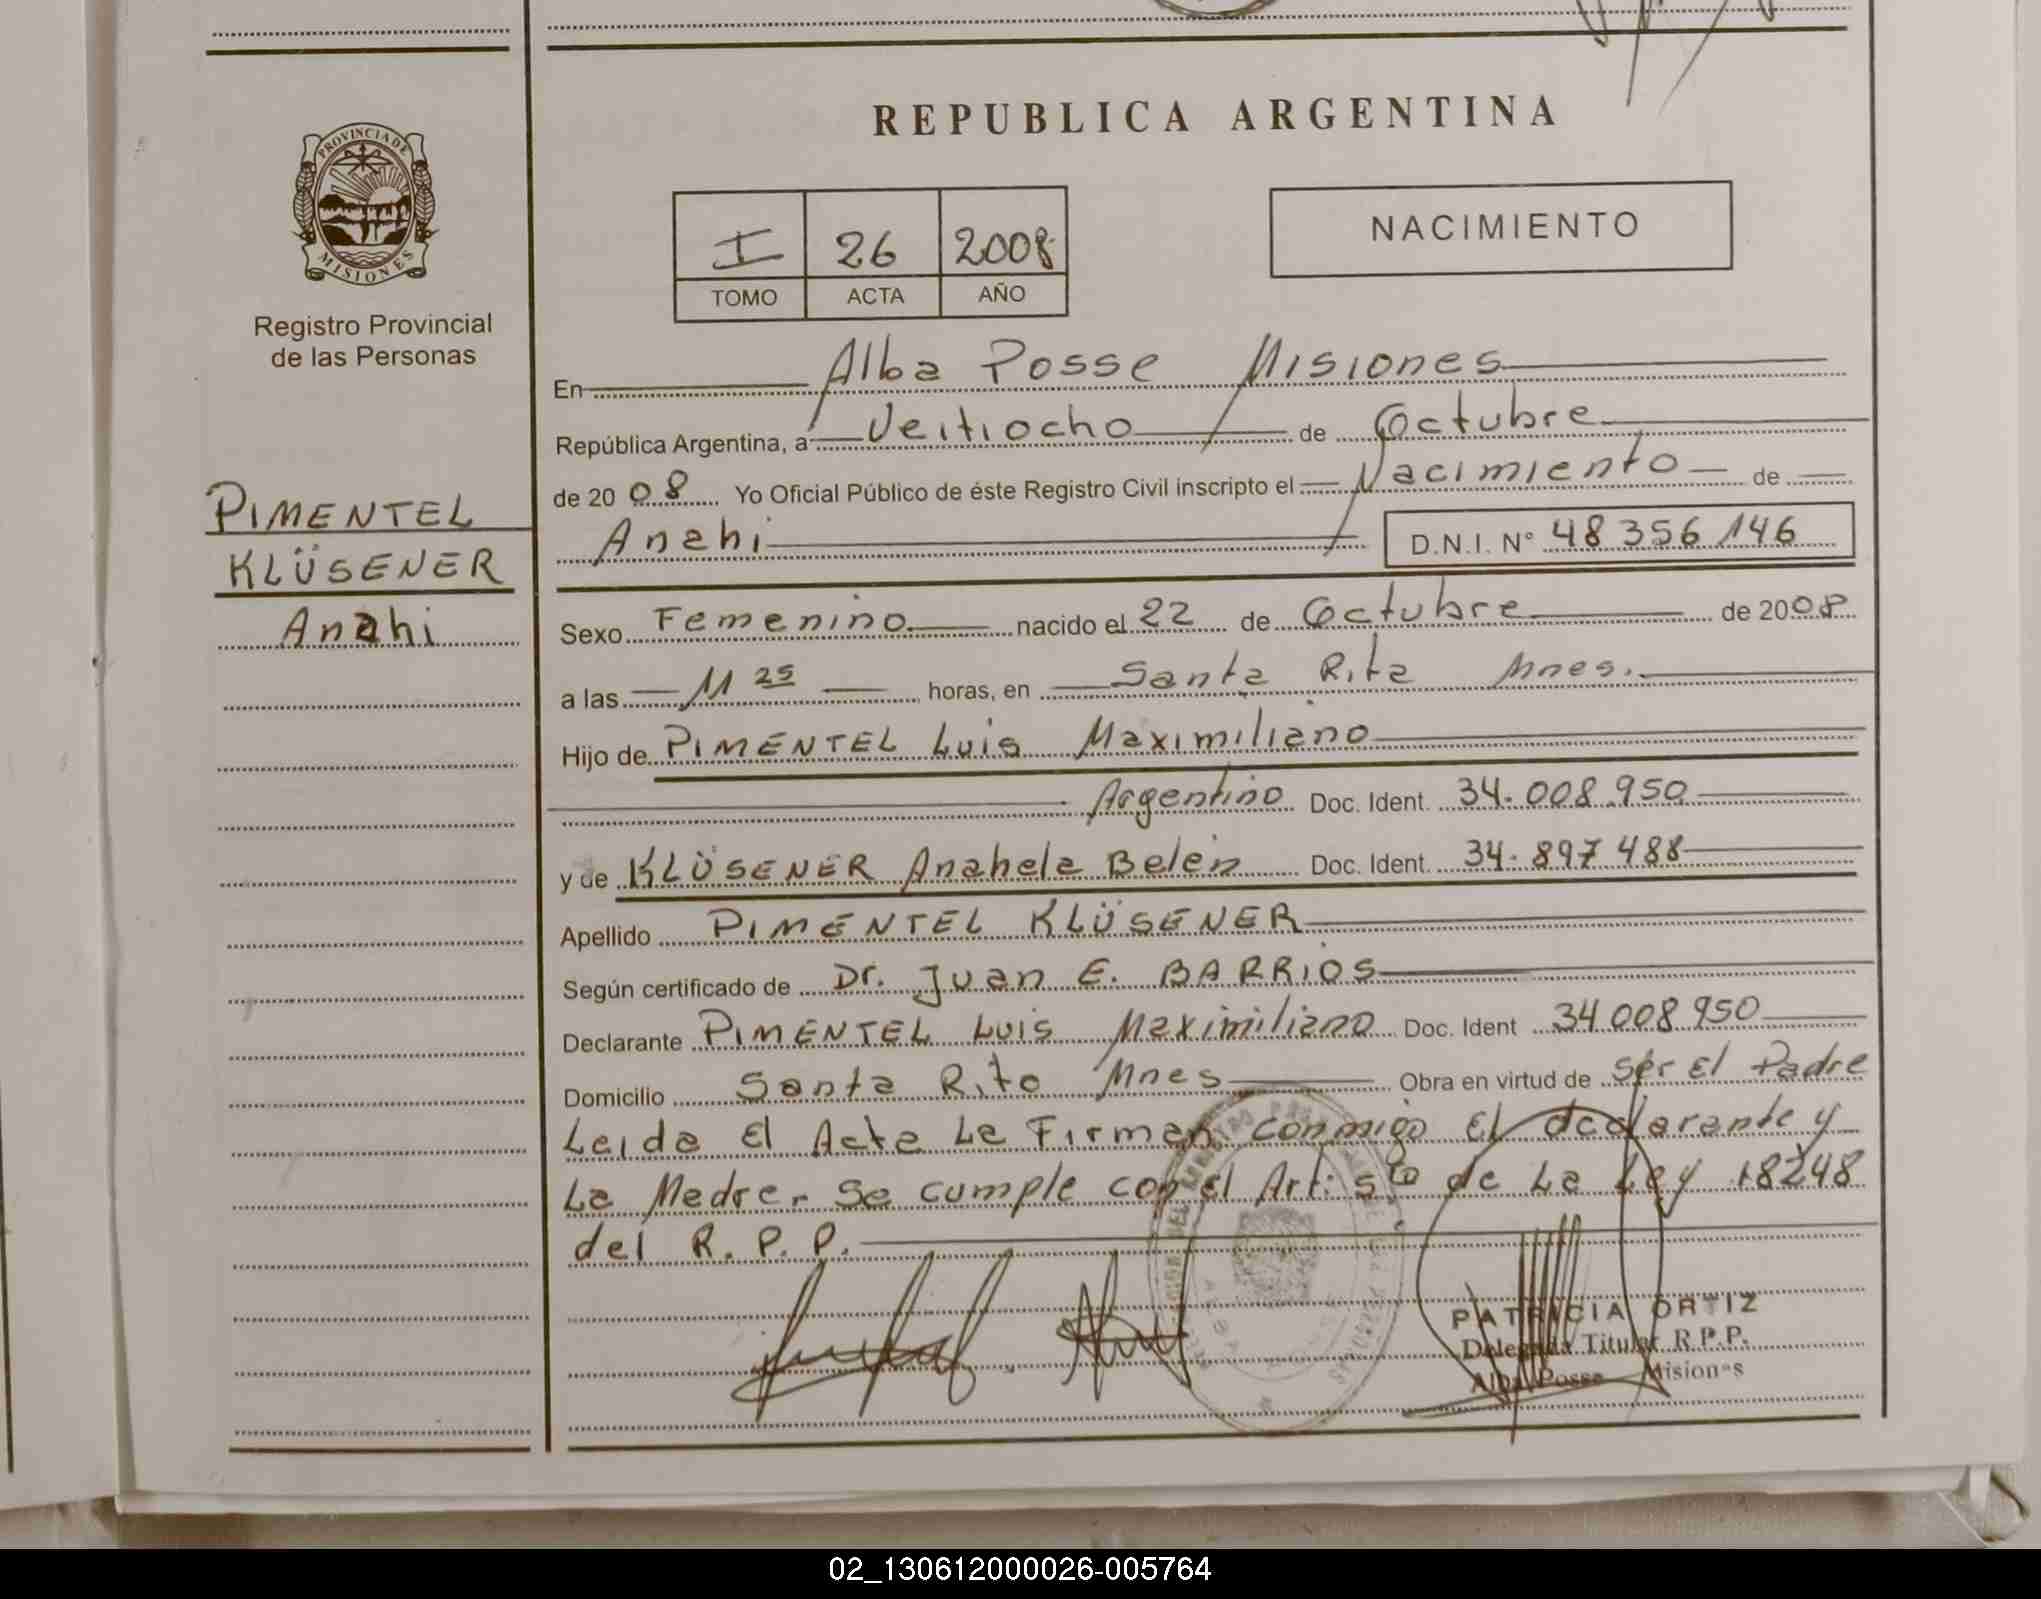 REPUBLICA ARGENTINA
PROVINCIA DE
MISIONES
Registro Provincial
de las Personas
I 26 2008
TOMO ACTA AÑO
NACIMIENTO
PIMENTEL
KLÜSENER
Anahi
En Alba Posse Misiones
República Argentina, a Veitiocho de Octubre
de 20 08 Yo Oficial Público de éste Registro Civil inscripto el Nacimiento de
Anahi D.N.I. N° 48 356 146
Sexo Femenino nacido el 22 de Octubre de 2008
a las 11 25 horas, en Santa Rita Mnes.
Hijo de PIMENTEL Luis Maximiliano
Argentino Doc. Ident. 34.008.950
y de KLÜSENER Anahela Belén Doc. Ident. 34.897 488
Apellido PIMENTEL KLÜSENER
Según certificado de Dr. Juan E. BARRIOS
Declarante PIMENTEL Luis Maximiliano Doc. Ident 34 008 950
Domicilio Santa Rita Mnes Obra en virtud de ser El Padre
Leida El Acta La Firman conmigo El declarante y
La Madre. Se cumple con el Art: 5to de La Ley 18248
del R. P. P.
PATRICIA ORTIZ
Delegada Titular R.P.P.
Alba Posse Misiones
02_130612000026-005764